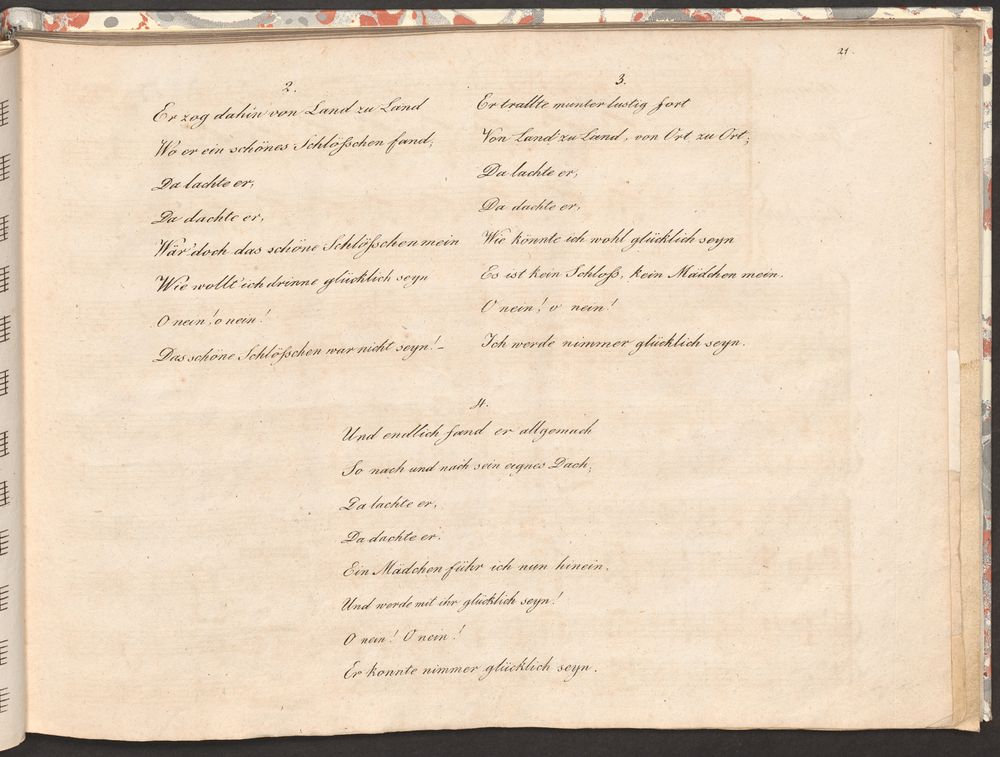 21.
2.
Er zog dahin von Land zu Land
Wo er ein schönes Schlößchen fand;
Da lachte er,
Da dachte er,
Wär' doch das schöne Schlößchen mein
Wie wollt' ich drinne glücklich seyn
O nein! o nein!
Das schöne Schlößchen war nicht seyn! –
3.
Er trallte munter lustig fort
Von Land zu Land, von Ort zu Ort;
Da lachte er,
Da dachte er,
Wie könnte ich wohl glücklich seyn
Es ist kein Schloß, kein Mädchen mein.
O nein! o nein!
Ich werde nimmer glücklich seyn.
4.
Und endlich fand er allgemach
So nach und nach sein eignes Dach;
Da lachte er,
Da dachte er.
Ein Mädchen führ ich nun hinein.
Und werde mit ihr glücklich seyn!
O nein! O nein!
Er konnte nimmer glücklich seyn.